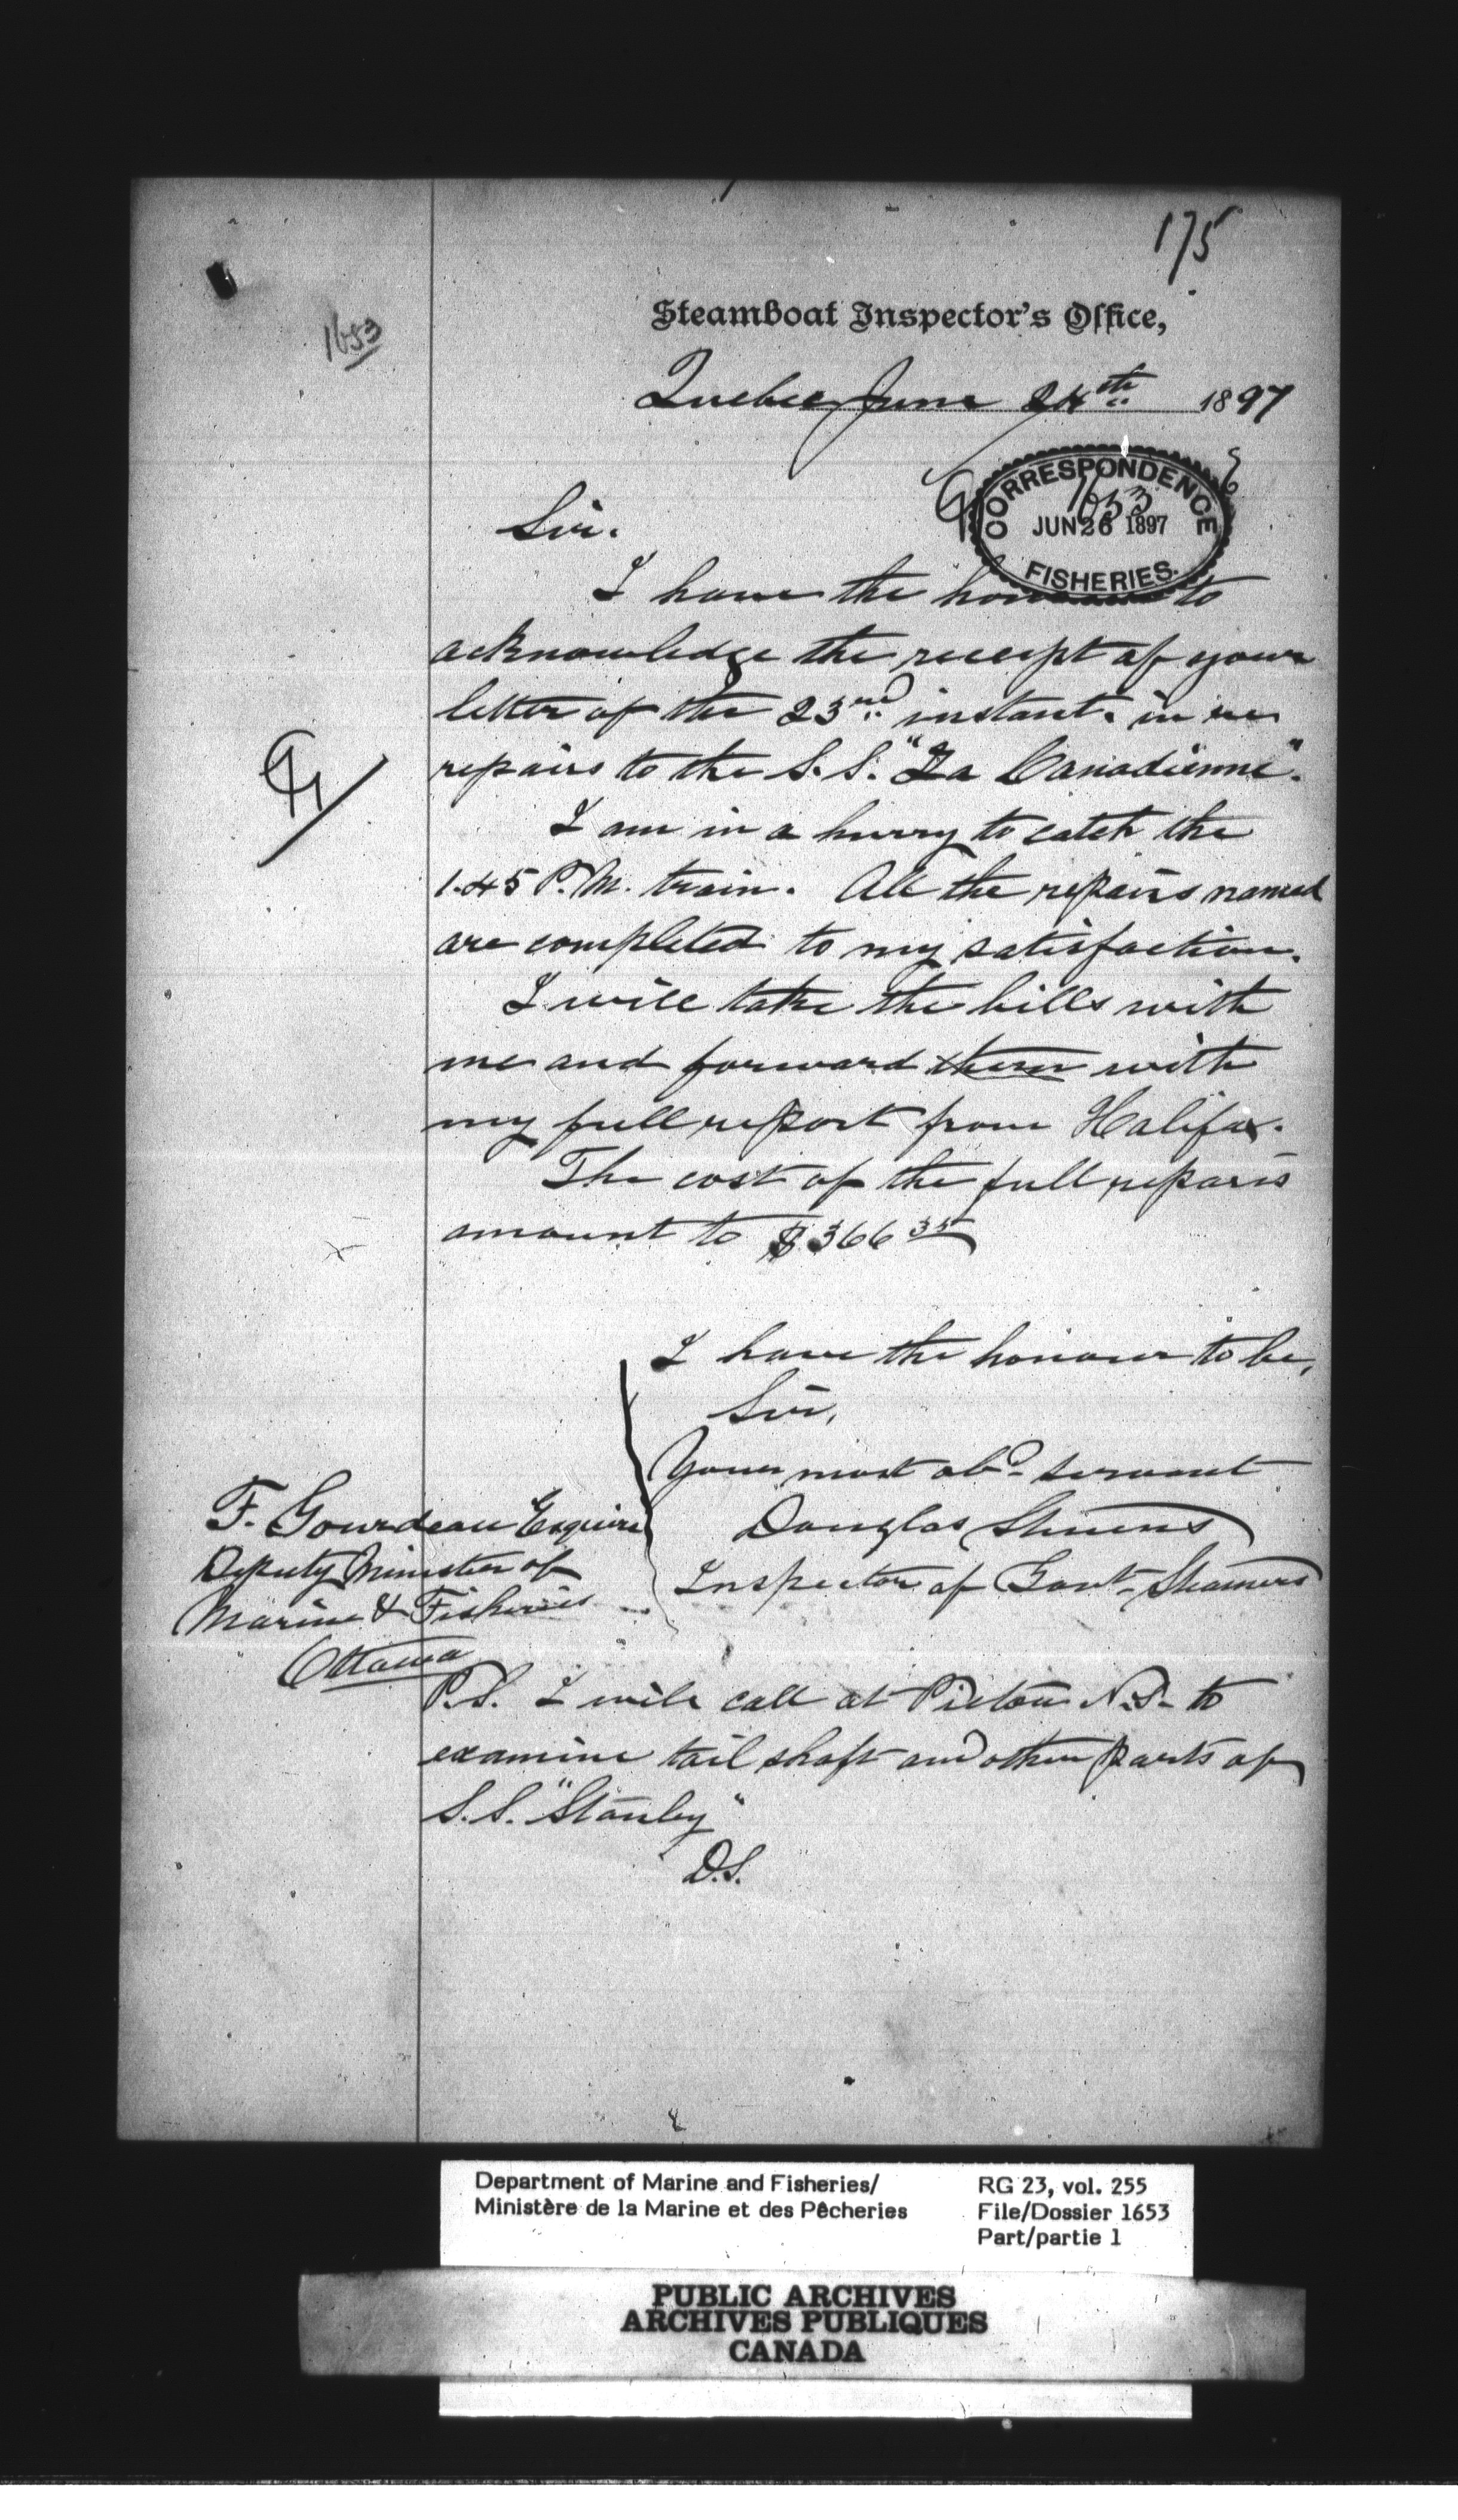 175
1653
Steamboat Inspector's Office,
Quebec June 24th 1897
CORRESPONDENCE
1653
JUN 26 1897
FISHERIES.
Sir.
I have the honour to
acknowledge the receipt of your
letter of the 23rd instant. in re
repairs to the S.S. "La Canadienne".
I am in a hurry to catch the
1.45 P.M. train. All the repairs named
are completed to my satisfaction.
I will take the bills with
me and forward them with
my full report from Halifax.
The cost of the full repairs
amount to $366
I have the honour to be,
Sir,
Your most obd- servant
Douglas Stevens
Inspector of Govt- Steamers
F. Gourdeau Esquire
Deputy Minister of
Marine & Fisheries
Ottawa
P.S. I will call at Pictou N.S- to
examine tail shaft and other parts of
S.S. "Stanley"
D.S.
Department of Marine and Fisheries/
Ministère de la Marine et des Pêcheries
RG 23, vol. 255
File/Dossier 1653
Part/partie 1
PUBLIC ARCHIVES
ARCHIVES PUBLIQUES
CANADA